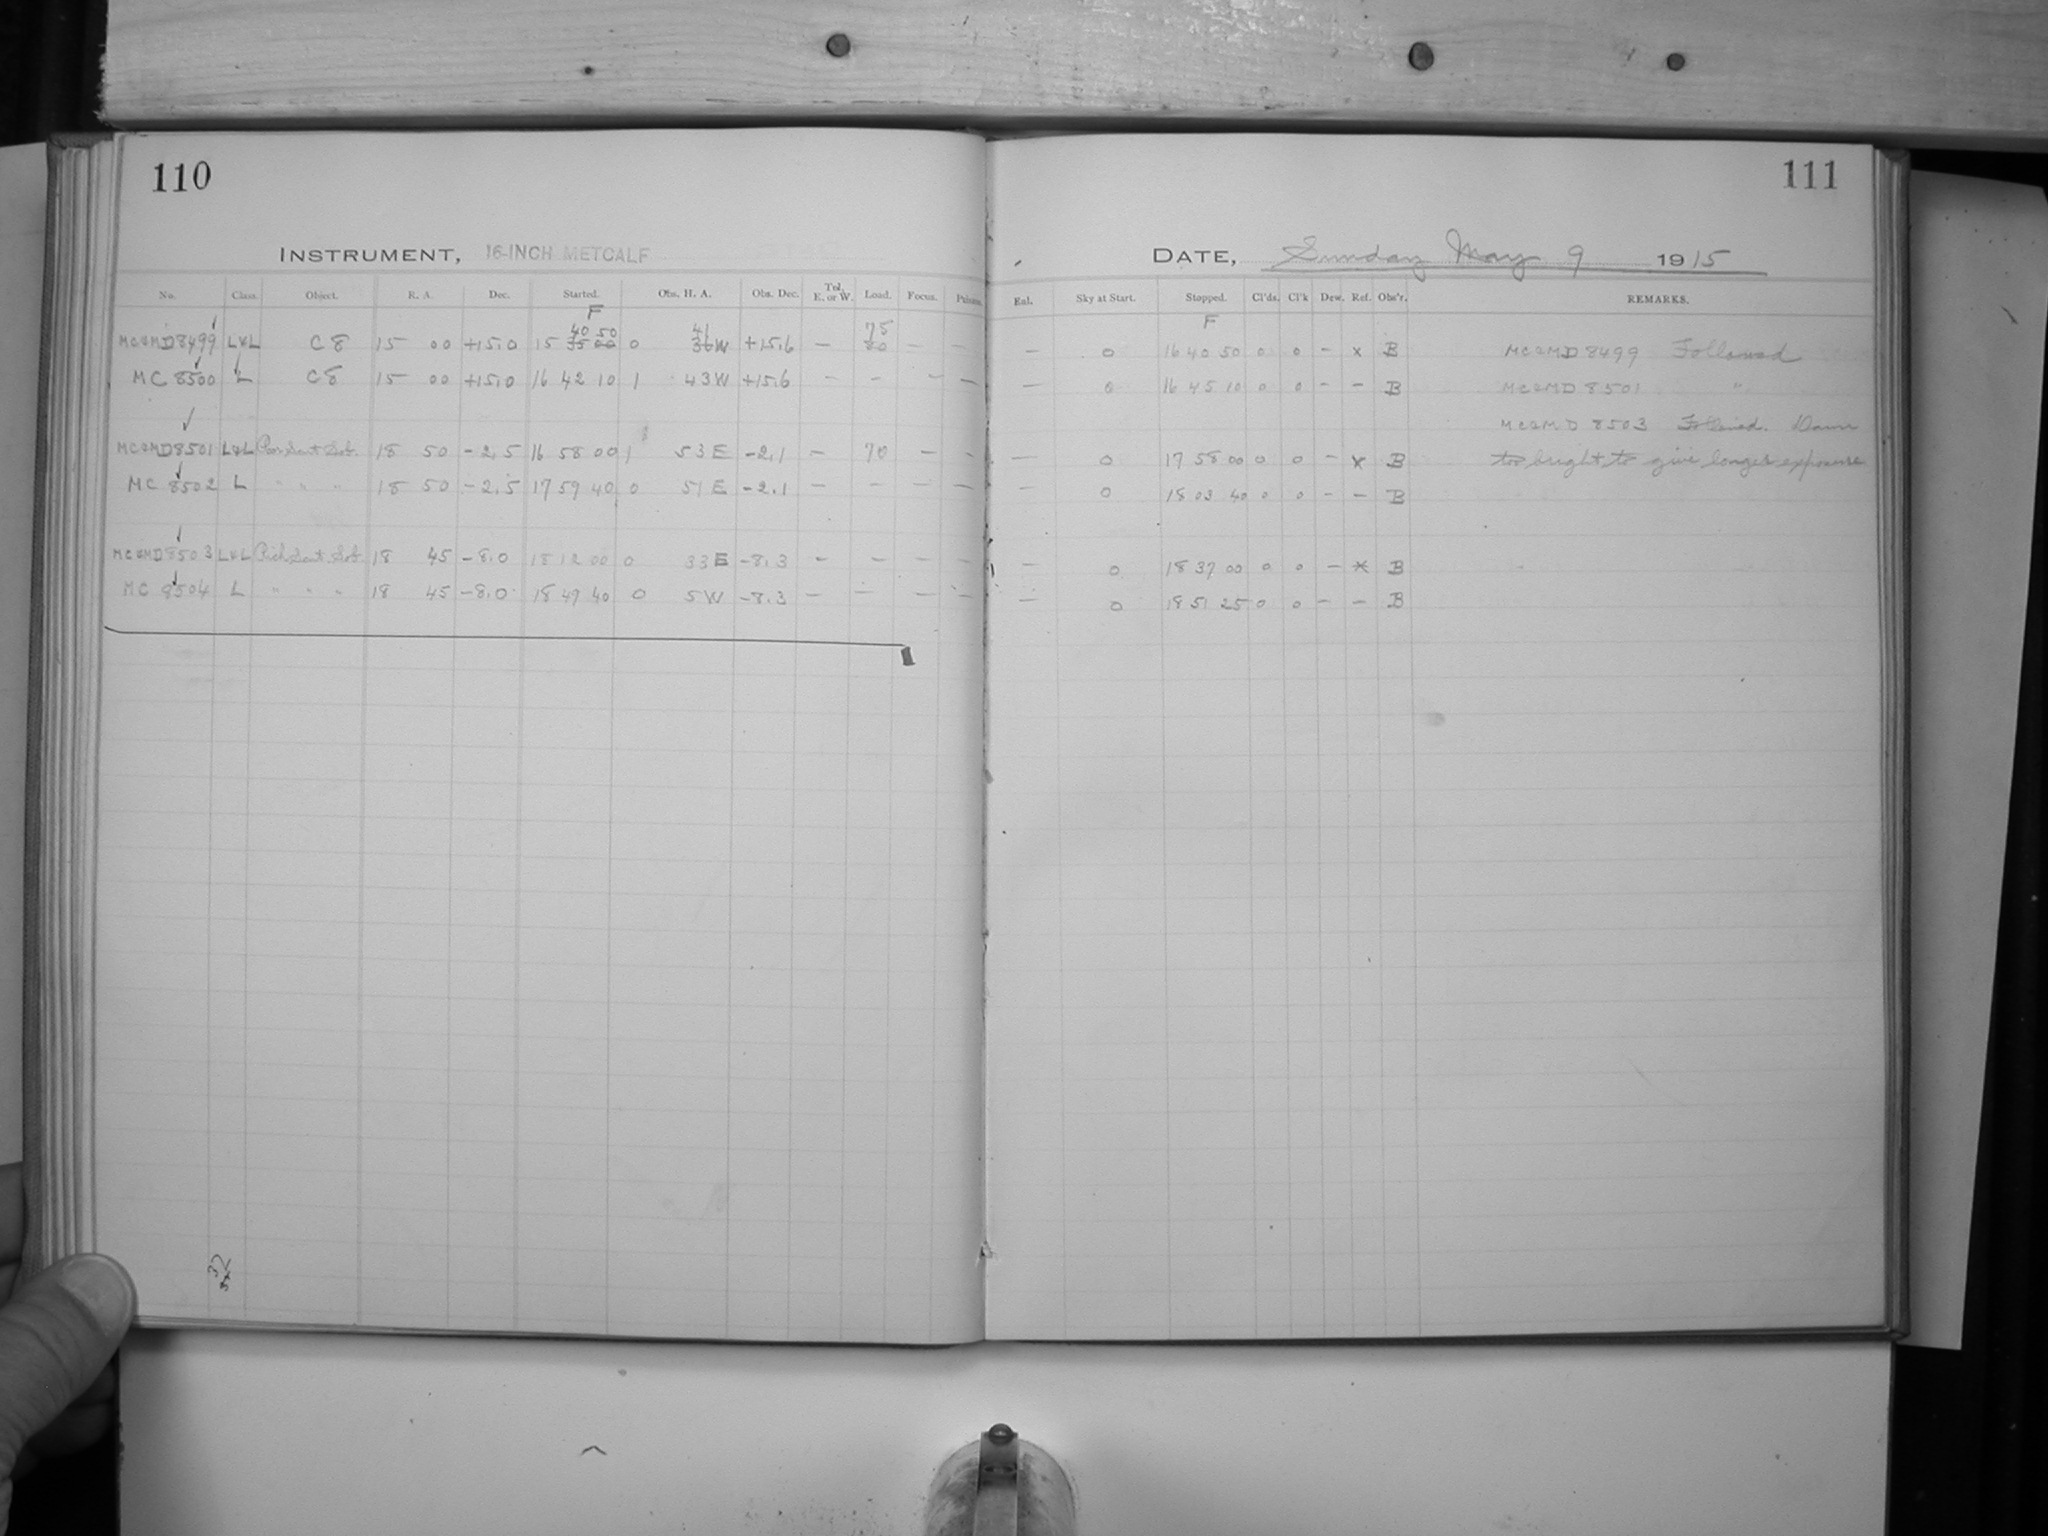 110
INSTRUMENT, 16-INCH METCALF
No. Class. Object. R. A. Dec. Started. Obs. H. A. Obs. Dec. Tel. E. or W. Load. Focus. Prisms.
F
40 50 41 75
MC&MD8499 L&L C8 15 00 +15.0 15 35 00 0 36W +15.6 — 80 — —
MC 8500 L C8 15 00 +15.0 16 42 10 1 43W +15.6 — — — —
MC&MD8501 L&L 18 50 -2.5 16 58 00 1 53E -2.1 — 70 — —
MC 8502 L " " " 18 50 -2.5 17 59 40 0 51E -2.1 — — — —
MC&MD8503 L&L 18 45 -8.0 18 12 00 0 33E -8.3 — — — —
MC 8504 L " " " 18 45 -8.0 18 49 40 0 5W -8.3 — — — —
32
111
DATE, Sunday May 9 1915
Enl. Sky at Start. Stopped. Cl'ds. Cl'k Dew. Ref. Obs'r. REMARKS.
F
— 0 16 40 50 0 0 — x B MC&MD 8499 Followed
— 0 16 45 10 0 0 — — B MC&MD 8501 "
MC&MD 8503 Followed. Dawn
— 0 17 58 00 0 0 — x B too bright to give longer exposure
— 0 18 03 40 0 0 — — B
— 0 18 37 00 0 0 — x B
— 0 18 51 25 0 0 — — B